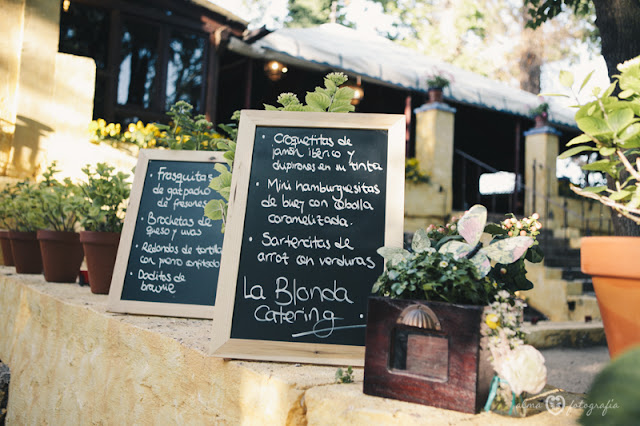 Frasquitas
de gazpacho
de fresones
Brochetas de
queso y uvas
Redondos de tortilla
con pisto confitado
Bocditos de
brownie
• Croquetitas de
jamón ibérico y
chipirones en su tinta
• Mini hamburguesitas
de buey con cebolla
caramelizada.
• Sartencitas de
arroz con verduras
La Blonda
Catering
alma fotografía